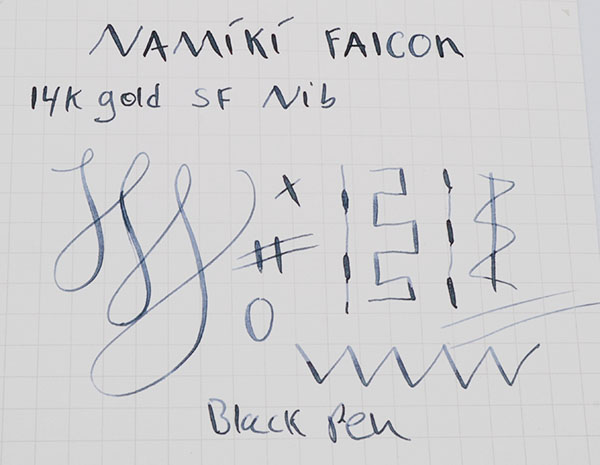 NAMÍKÍ FAlCON
14K gold SF Nib
x
#
0
Black Pen